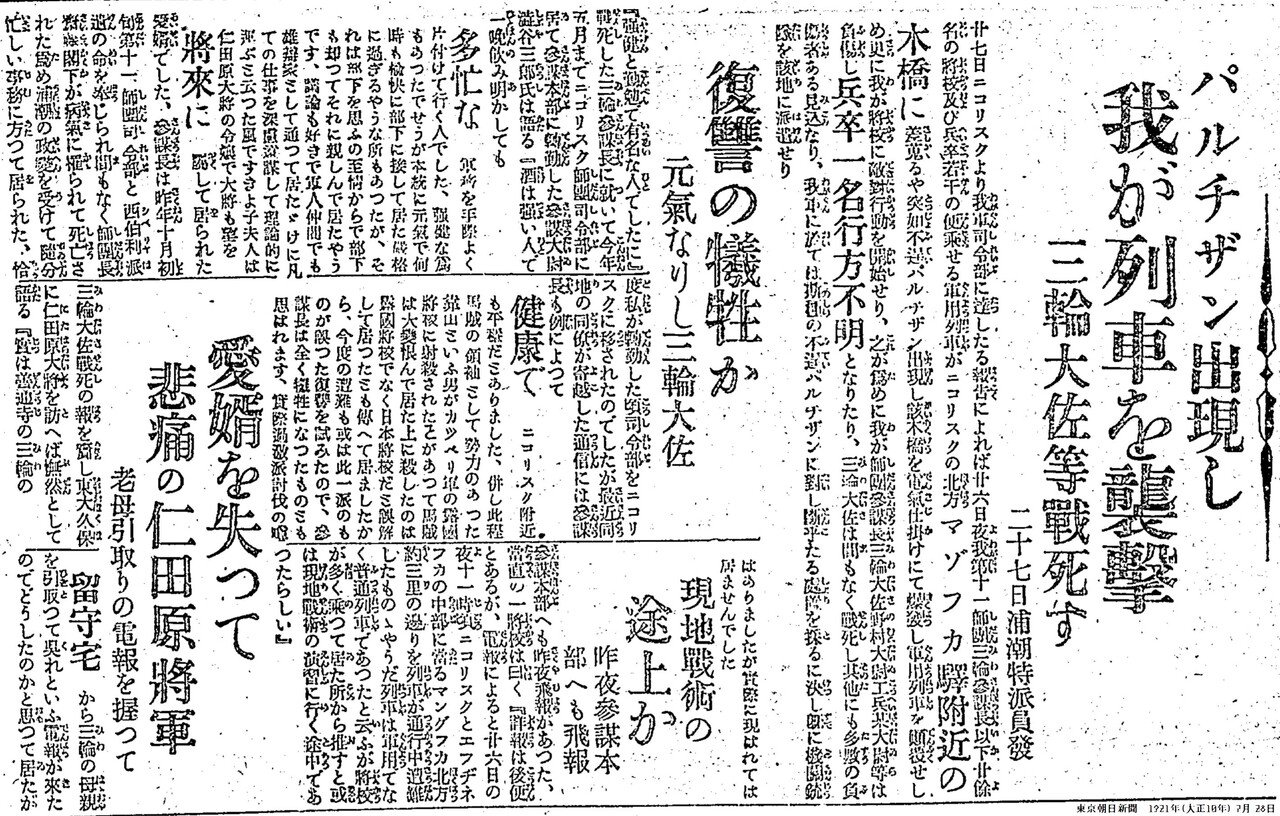 パルチザン出現し
我が列車を襲撃
三輪大佐等戰死す
二十七日浦潮特派員發
廿七日ニコリスクより我軍司令部に達したる報告によれば廿六日夜我第十一師團三輪參謀長以下廿餘
名の將校及び兵卒若干の便乘せる軍用列車がニコリスクの北方マゾフカ驛附近の
木橋に 差蒐るや突如不逞パルチザン出現し該木橋を電氣仕掛けにて爆破し軍用列車を顛覆せし
め更に我が將校に敵對行動を開始せり、之が爲めに我が師團參謀長三輪大佐野村大尉工兵某大尉等は
負傷し兵卒一名行方不明となりたり、三輪大佐は間もなく戰死し其他にも多數の負
傷者ある見込なり、我軍に於ては斯種の不逞パルチザンに對し斷乎たる處置を採るに決し
隊を該地に派遣せり
復讐の犠牲か
元氣なりし三輪大佐
『強健と勤勉で有名な人でした』と
戰死した三輪參謀長に就いて今年
五月までニコリスク師團司令部に
居て參謀本部に勤動した參謀大尉
澁谷三郎氏は語る『酒は強い人で
一晩飲み明かしても
多忙な 軍務を手際よく
片付けて行く人でした、強健な爲
もあつたでせうが本統に元氣で何
時も愉快に部下に接して居た嚴格
に過ぎるやうな所もあつたが、そ
れは部下を思ふの至情からで部下
も却つてそれに親しんで居たやう
です、議論も好きで軍人仲間でも
雄辯家として通つて居たゞけに凡
ての仕事を深慮熟謀して理論的に
運ぶと云つた風でした子夫人は
仁田原大將の令孃で大將も望を
將來に 囑して居られた
愛婿でした、參謀長は昨年十月初
旬第十一師團司令部と西伯利派
遣の命を奉じられ間もなく師團長
閣下が病氣に罹られて死亡さ
れた爲め浦潮の政變を受けて隨分
忙しい事務に方つて居られた、恰
度私が勤動した頃司令部をニコリ
スクに移されたのでしたが最近同
地の同僚が寄越した通信には參謀
長も例によつて
健康で、 ニコリスク附近
も平穩だとありました、併し此程
馬賊の領袖として勢力のあつた
靠山といふ男がカツペリ軍の露國
將校に射殺されたとがあつて馬賊
は大變恨んで居た上に殺したのは
露國將校でなく日本將校だと誤解
して居つたとも傳へて居ましたか
ら、今度の遭難も或は此一派のも
のが誤つた復讐を試みたので、參
謀長は全く犠牲になつたものとも
思はれます、實際過激派討伐の
はありましたが實際に現はれては
居ませんでした
現地戰術の
途上か
昨夜參謀本
部へも飛報
參謀本部へも昨夜飛報があつた、
當直の一將校は曰く『詳報は後便
とあるが、電報によると廿六日の
夜十一時ニコリスクとエフゲネ
フカの中部に當るマングフカ北方
約三里の邊りを列車が通行中遭難
したものゝやうだ列車は軍用でな
く普通列車であつたと云ふが將校
が多く乘つて居た所から推すと或
は現地戰術の演習に行く途中であ
つたらしい』
愛婿を失つて
悲痛の仁田原將軍
老母引取りの電報を握つて
三輪大佐戰死の報を齎し東大久保
に仁田原大將を訪へば憮然として
語る『實は善通寺の三輪の
留守宅 から三輪の母親
を引取つて呉れといふ電報が來た
のでどうしたのかと思つて居たが
東京朝日新聞 1921年(大正10年)7月28日